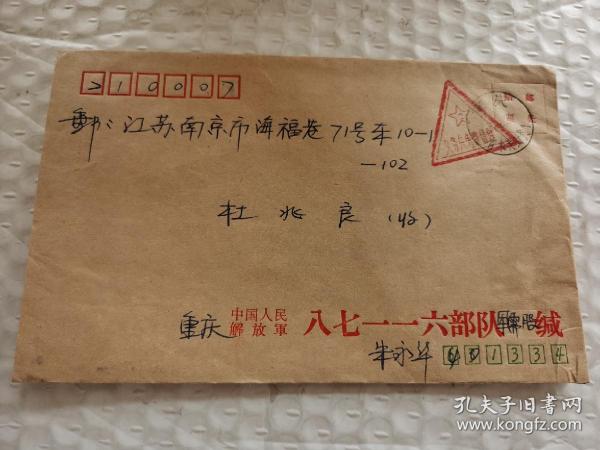 210007
江苏南京市海福巷71号车10-1
-102
杜兆良(收)
重庆 中国人民解放軍 八七一一六部队 缄
朱永华
1334
孔夫子旧书网
www.kongfz.com